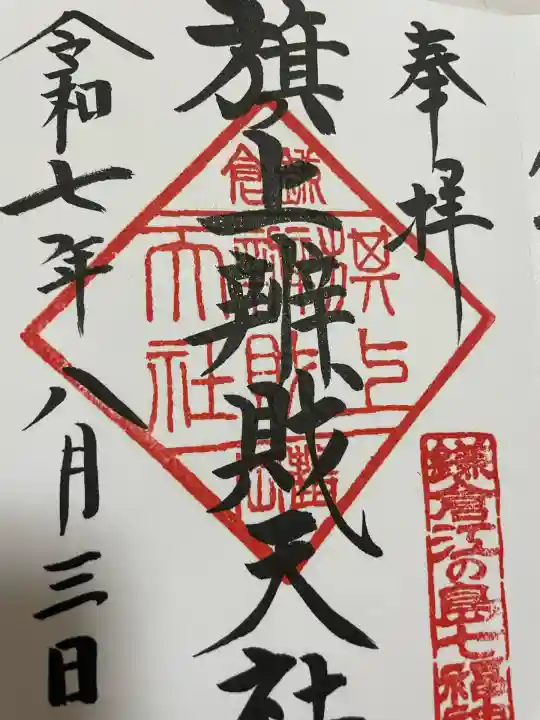 奉拝
旗上辨財天社
令和七年八月三日
鎌倉
旗上
辨財
天社
鎌倉江の島七福神